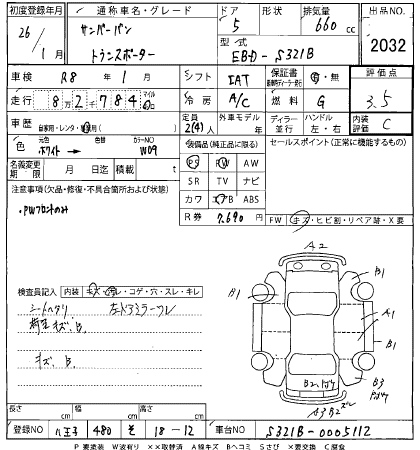 初度登録年月 通称車名・グレード ドア 形状 排気量 出品NO.
26年 1月 サンバーバン トランスポーター 5 660 cc 2032
型式 EBD-S321B
車検 R8年 1月 シフト IAT 保証書 有・無 評価点
走行 8万2千784 マイル km 冷房 A/C 燃料 G 3.5
車歴 自家用・レンタ・ 定員 2(4)人 外車モデル 年 ディーラー 並行 ハンドル 左・右 内装評価 C
色 元色 ホワイト 色替 カラーNO W09
装備品(純正品に限る) セールスポイント(正常に機能するもの)
名義変更期限 月 日 迄 積載 t
PS PW AW
SR TV ナビ
カワ エアB ABS
R券 7,690円
注意事項(欠品・修復・不具合箇所および状態)
・PWフロントのみ
FW キズ・ヒビ割・リペア跡・X要
検査員記入 内装 キズ・汚レ・コゲ・穴・スレ・キレ
シートヘタリ 左ドアミラースレ
荷室キズ、B
キズ、B
A2
B1
B1
A1
B1
B2
B3
A3 B2
長さ cm 幅 cm 高さ cm
登録NO 八王子 480 そ 18-12 車台NO S321B-0005112
P 要塗装 W波有り ××取替済 A線キズ Bヘコミ Sさび ×要交換 C腐食